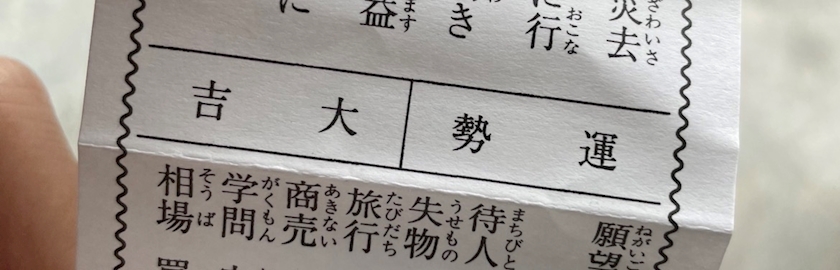 災去
ざわいさ
に行
おこな
き
益
ます
に
運勢
大吉
願望
ねがい
待人
まちびと
失物
うせもの
旅行
たびだち
商売
あきない
学問
がくもん
相場
そうば